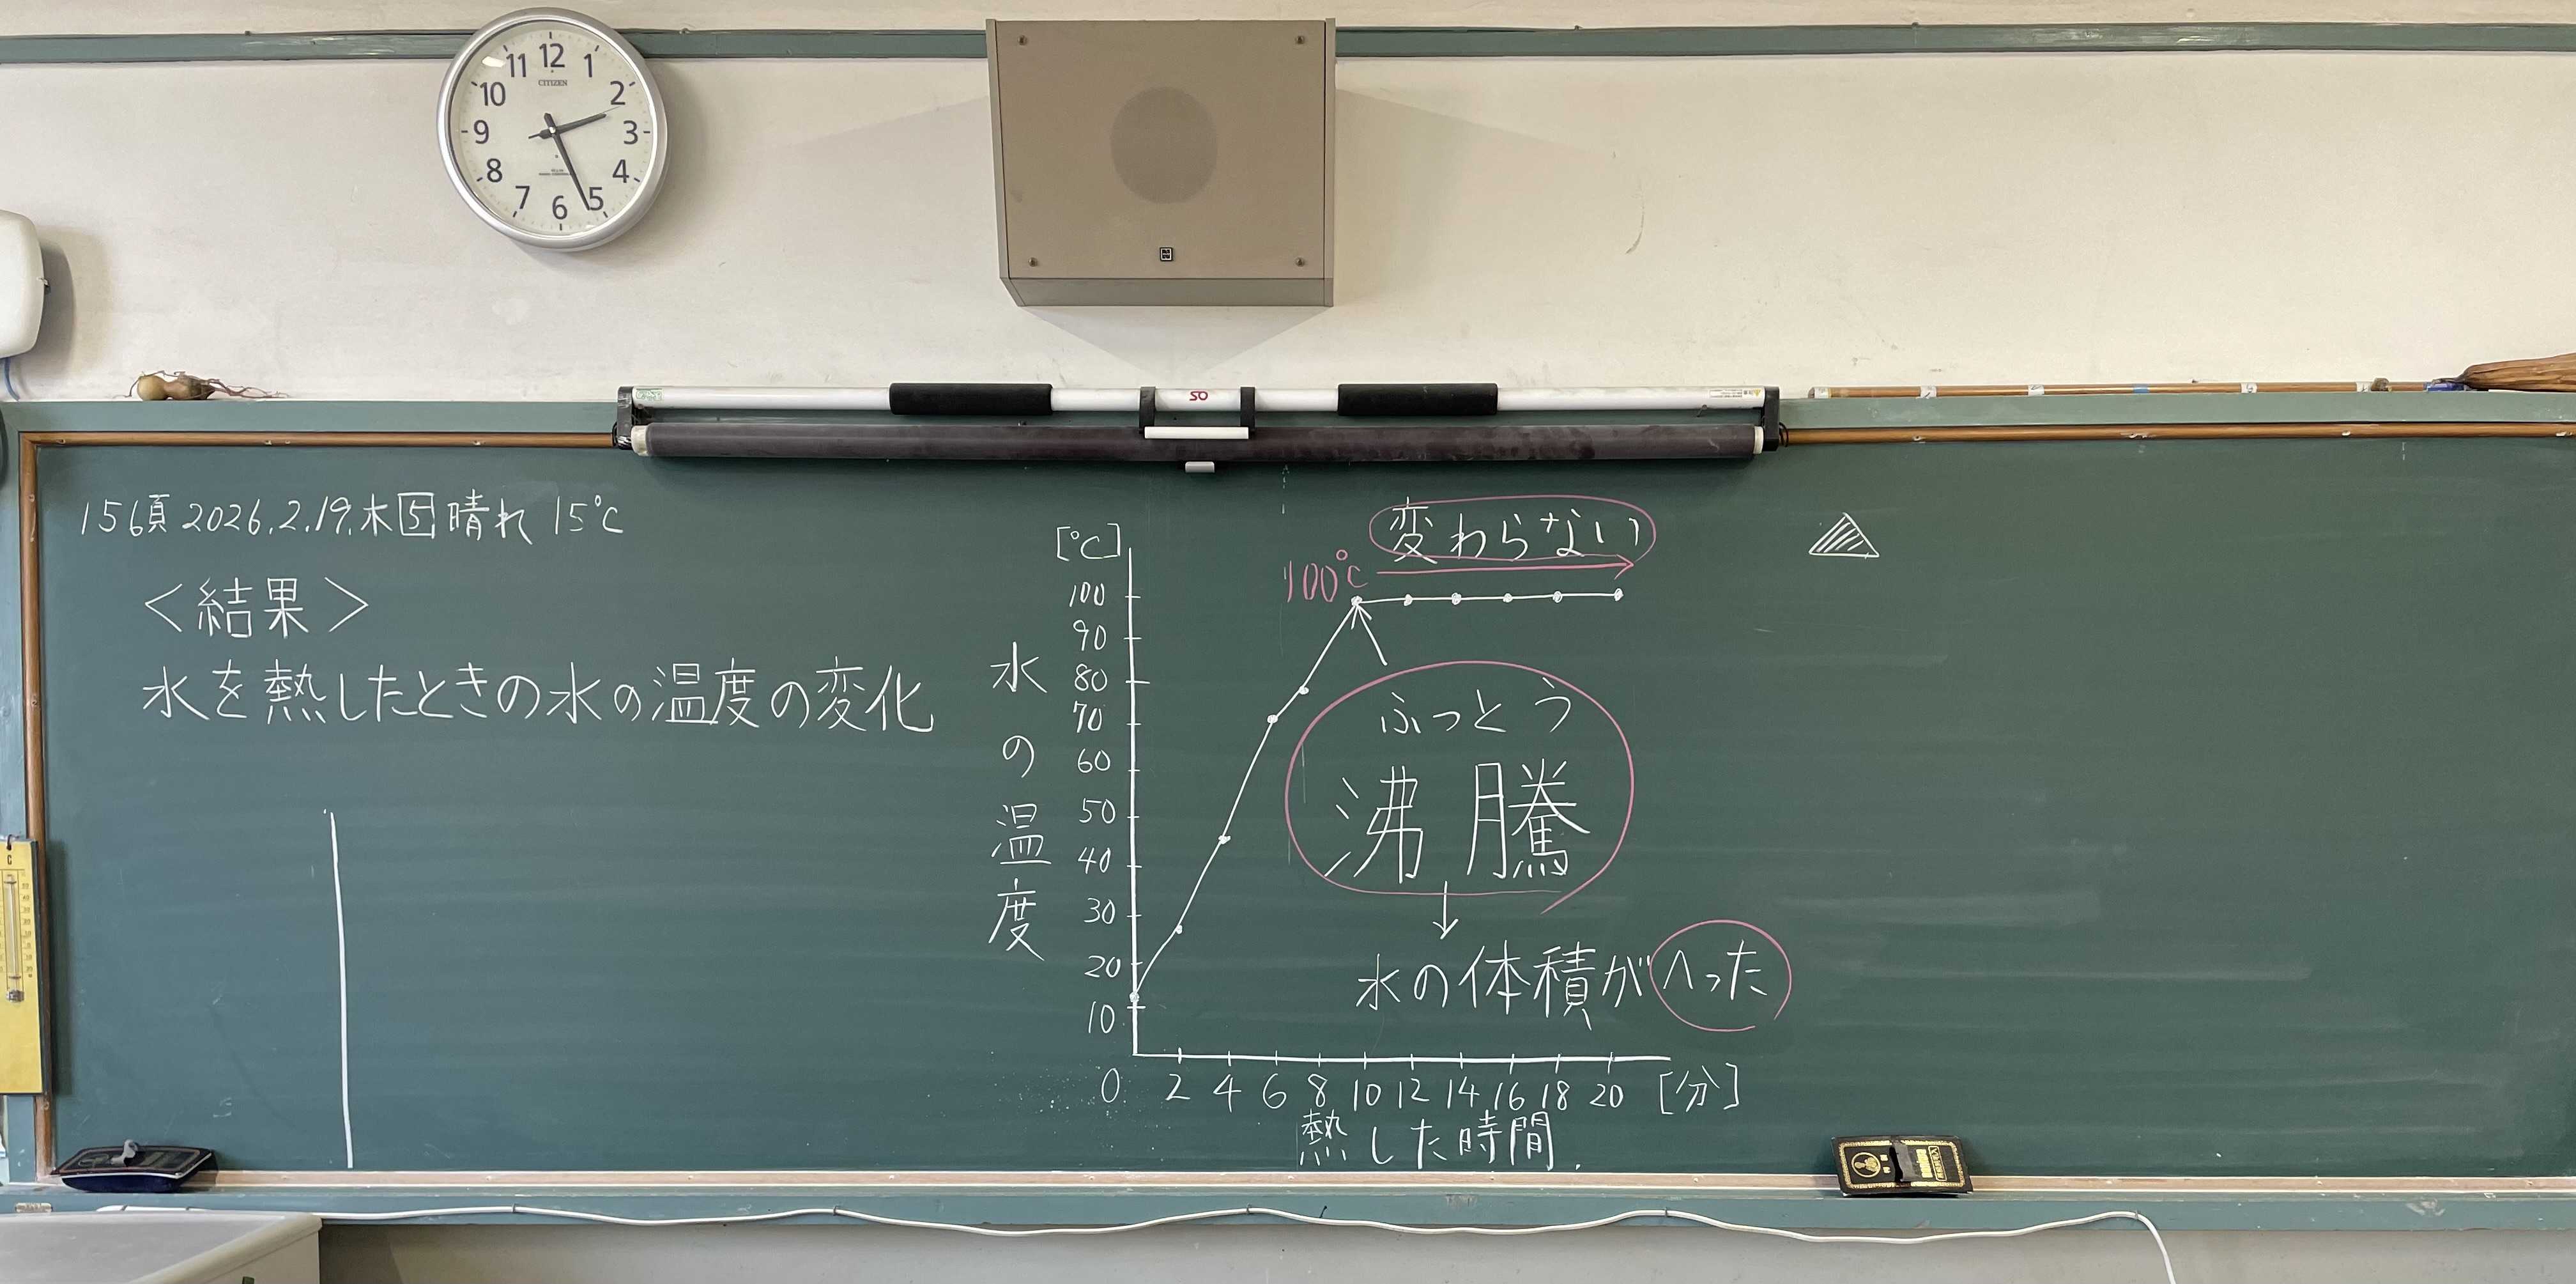 12
1
2
3
4
5
6
7
8
9
10
11
CITIZEN
50
156頁 2026.2.19.木 5 晴れ 15℃
<結果>
水を熱したときの水の温度の変化
[℃]
100
90
80
70
60
50
40
30
20
10
0
水の温度
2 4 6 8 10 12 14 16 18 20 [分]
熱した時間
変わらない
100℃
ふっとう
沸騰
↓
水の体積がへった
C